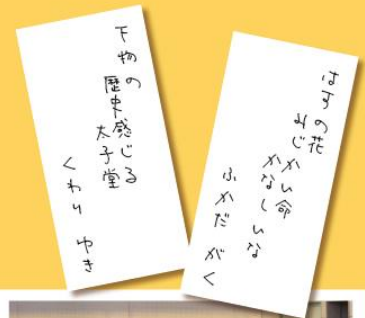 はすの花
みじかい命
かなしいな
ふかだ がく
下物の
歴史感じる
太子堂
くわり ゆき